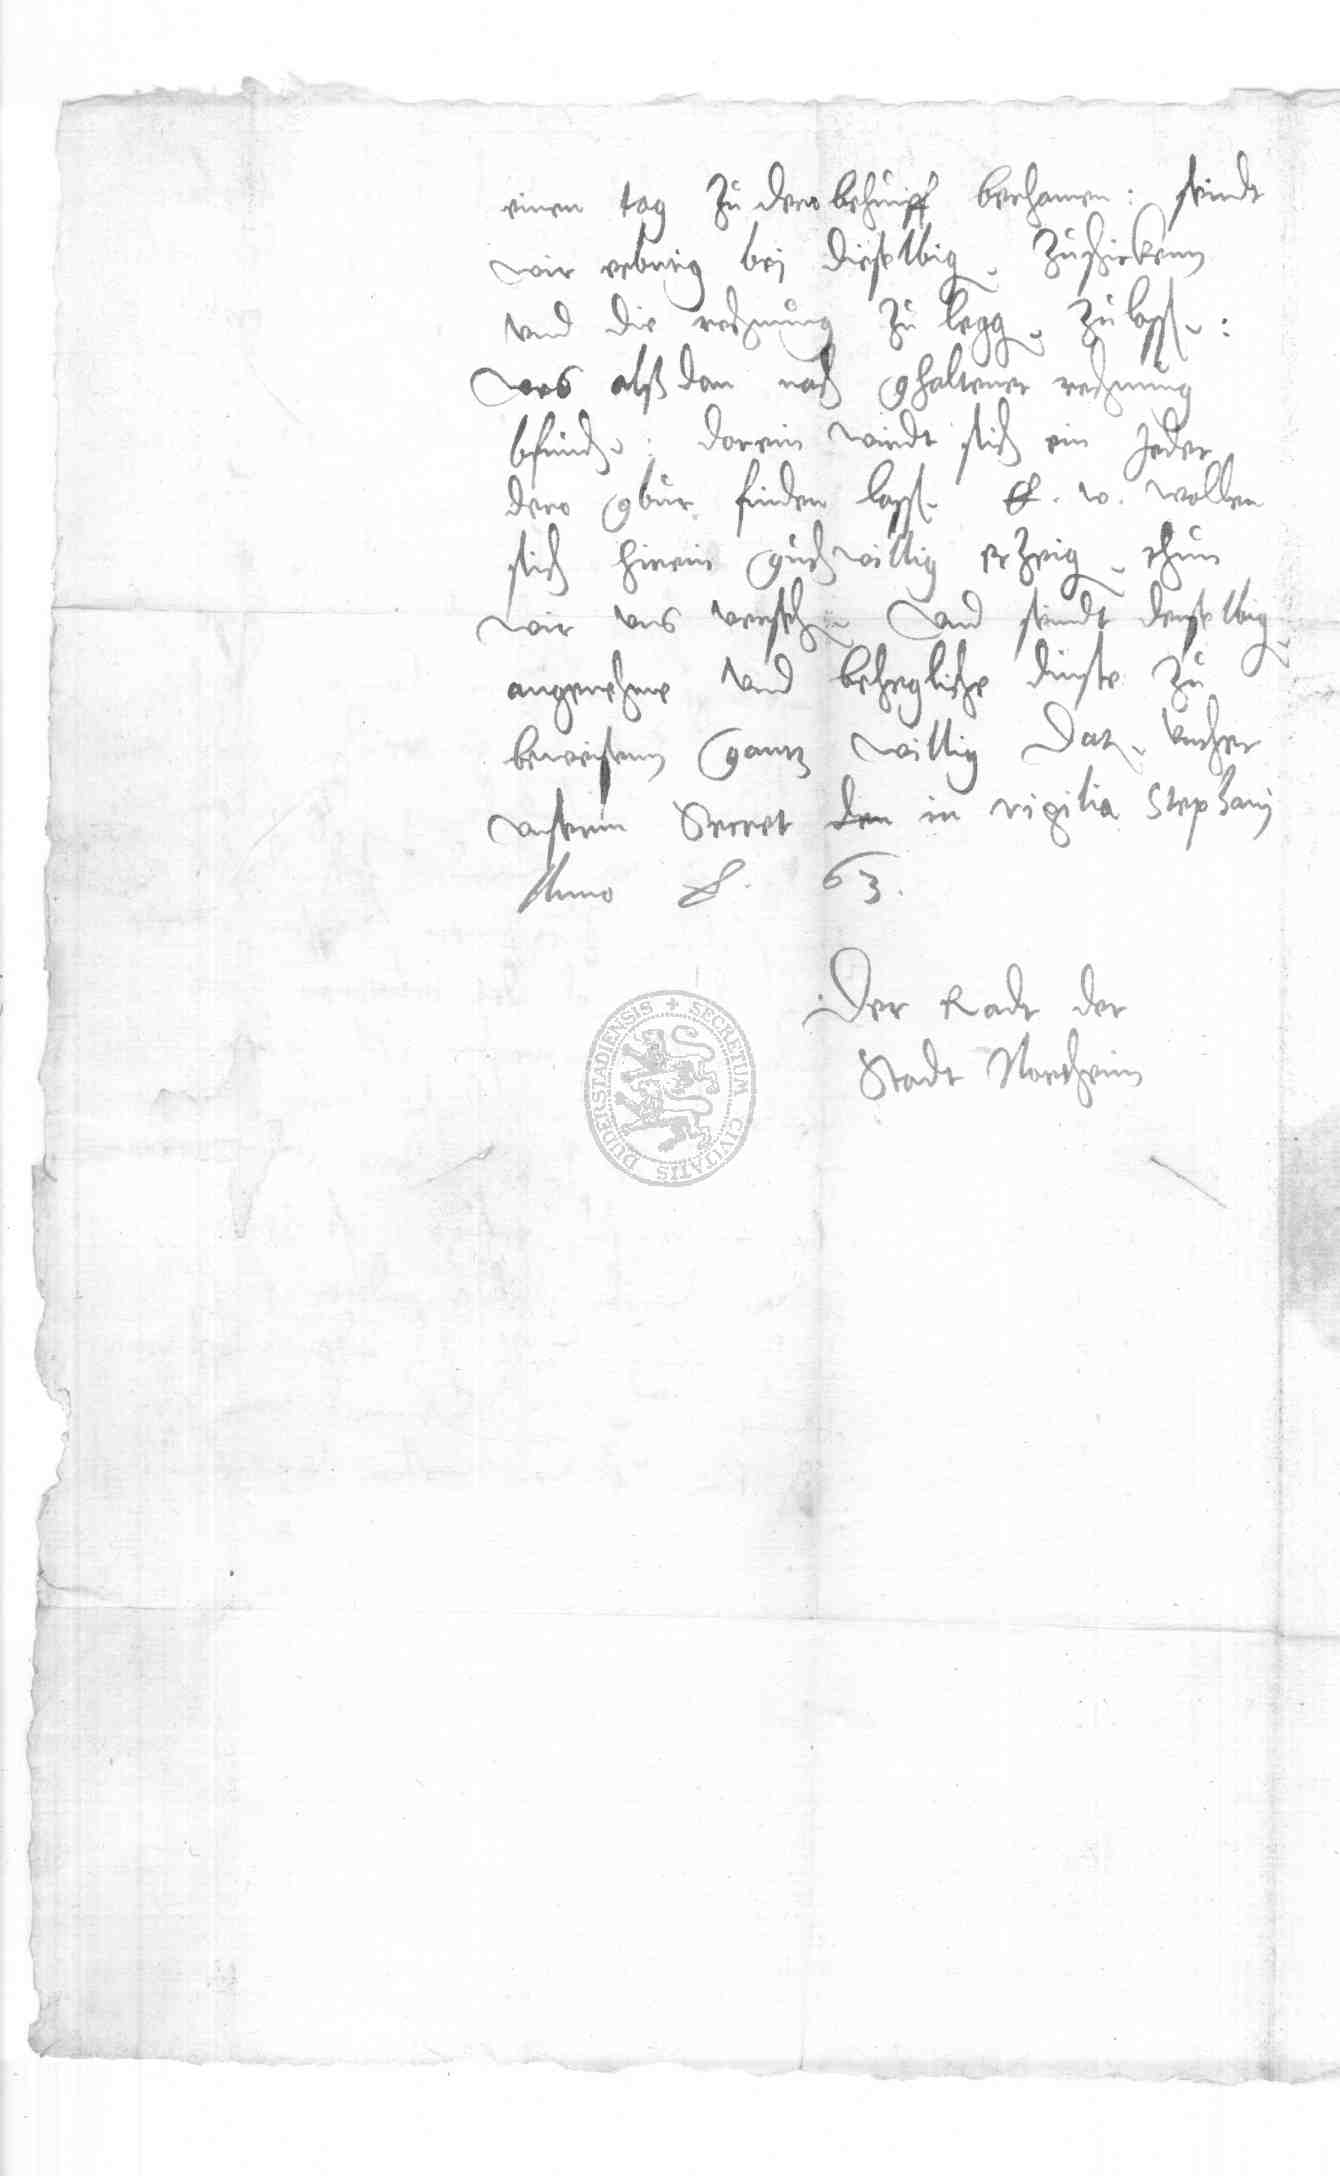 einen tag zu dero behuiff berhamen: seindt
wir erbutig bei dieselbig. zuschicken
vnd die rechnung zu legg. zulass.:
Wes alß dan nach ghaltener rechnung
bfindt. dorein wirdt sich ein Jeder
dero gbur. finden lass. E. w. wollen
sich hirein gudtwillig erzeig. thun
wir vns verseh. Vnd seindt derselbig.
angenehme vnd behegliche dinste zu
beweisenn gantz willig Dat. vnther
vnserm Secret den in vigilia Stephanj
Anno &. 63.
Der Radt der
Stadt Northeim
SECRETUM CIVITATIS DUDERSTADIENSIS